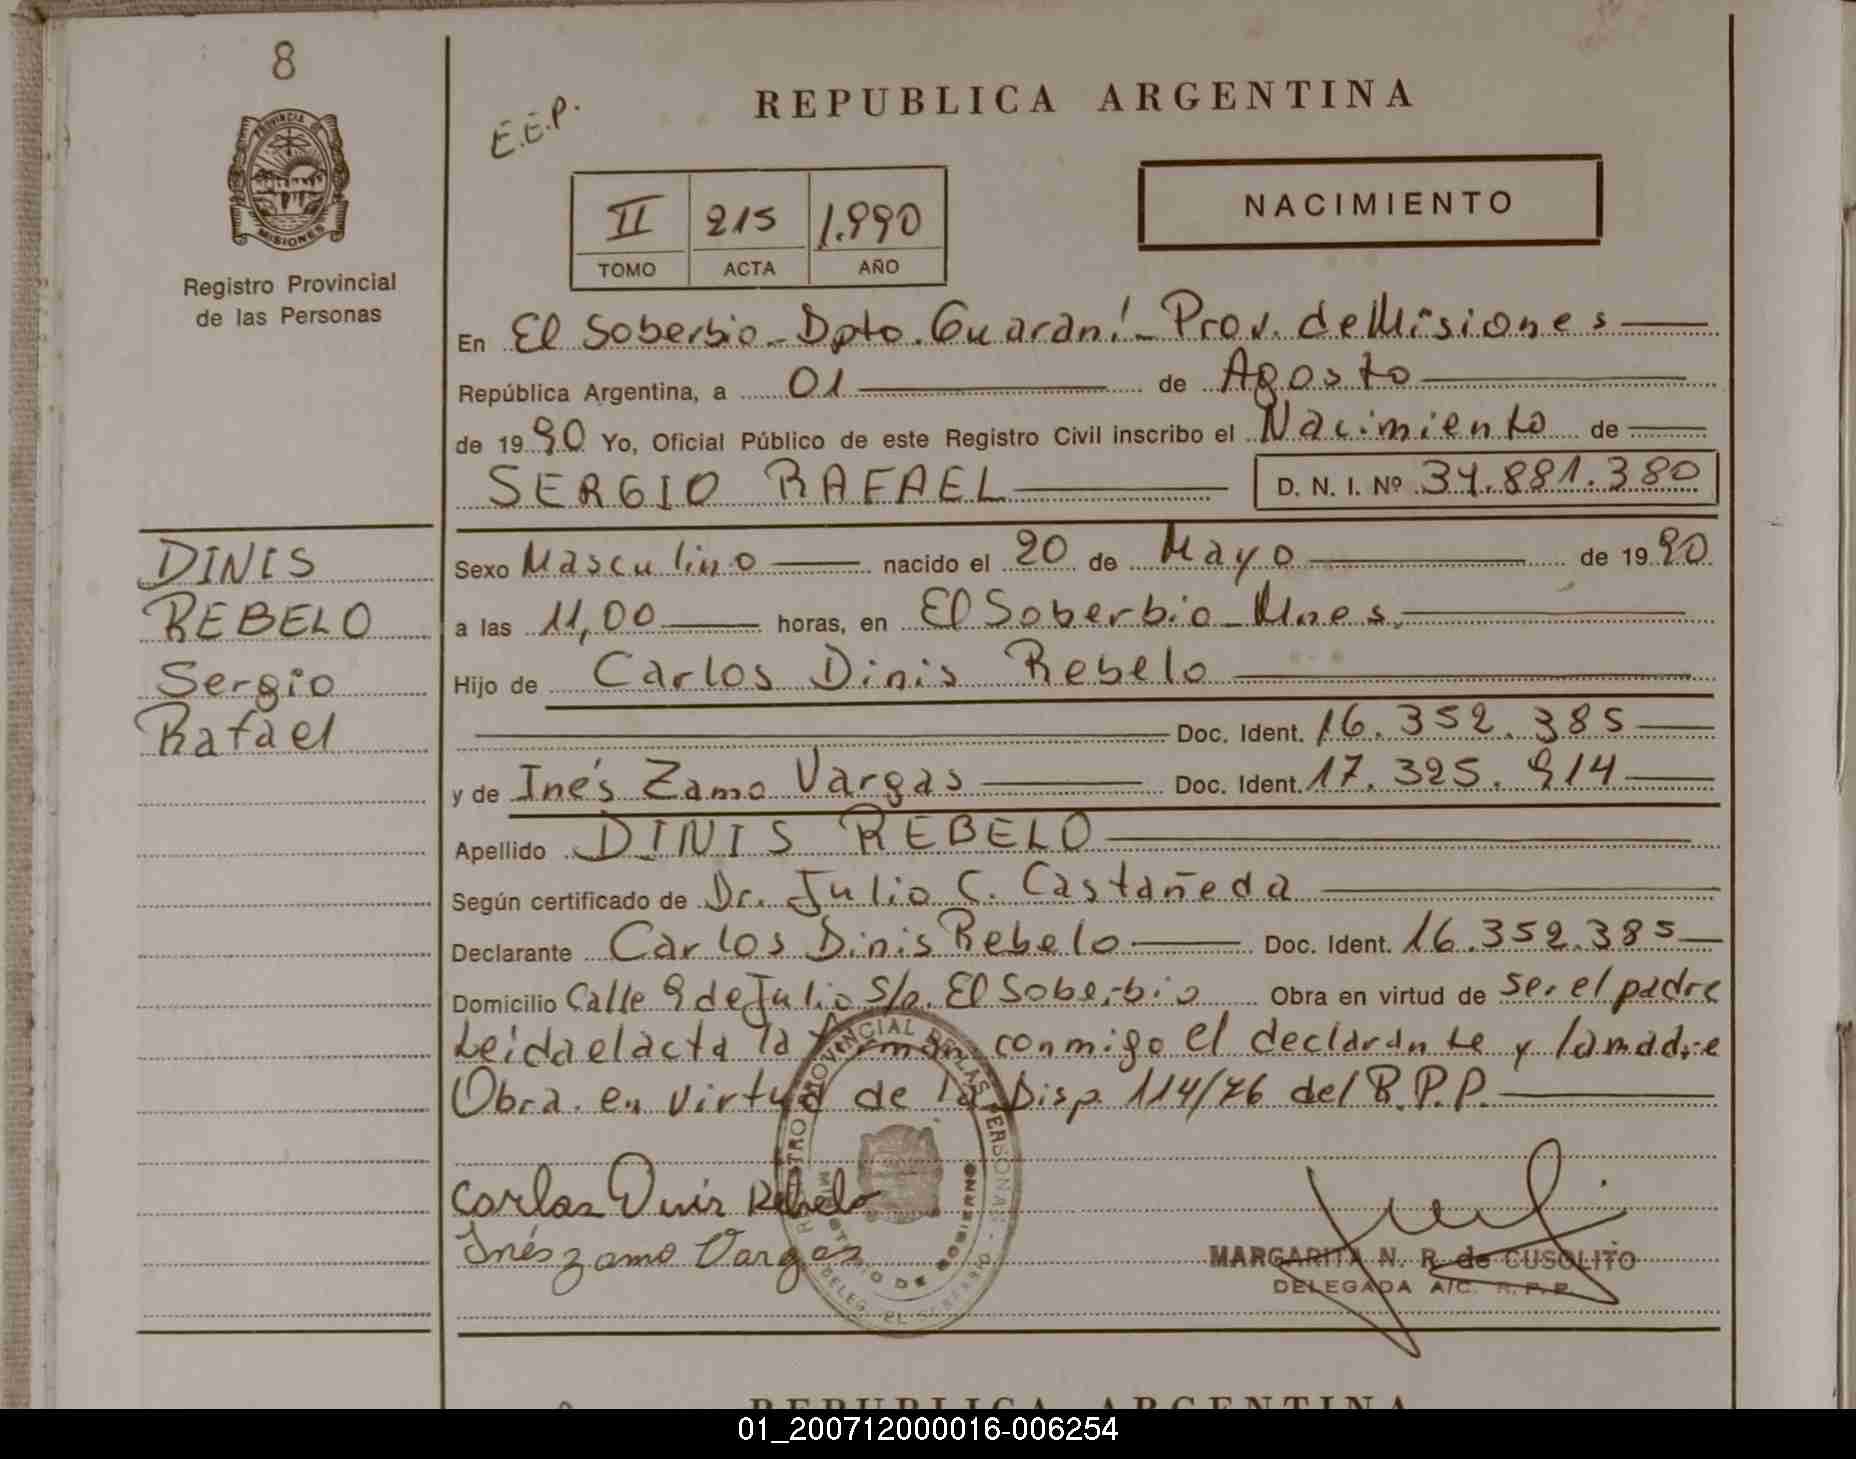 8
PROVINCIA DE
MISIONES
Registro Provincial
de las Personas
E.E.P.
REPUBLICA ARGENTINA
NACIMIENTO
II 215 1.990
TOMO ACTA AÑO
En El Soberbio - Dpto. Guaraní - Prov. de Misiones
República Argentina, a 01 de Agosto
de 1990 Yo, Oficial Público de este Registro Civil inscribo el Nacimiento de
SERGIO RAFAEL D. N. I. Nº 34.881.380
DINIS
REBELO
Sergio
Rafael
Sexo Masculino nacido el 20 de Mayo de 1990
a las 11,00 horas, en El Soberbio - Mnes.
Hijo de Carlos Dinis Rebelo
Doc. Ident. 16.352.385
y de Inés Zamo Vargas Doc. Ident. 17.325.914
Apellido DINIS REBELO
Según certificado de Dr. Julio C. Castañeda
Declarante Carlos Dinis Rebelo Doc. Ident. 16.352.385
Domicilio Calle 9 de Julio s/n. El Soberbio Obra en virtud de ser el padre
Leida el acta la firman conmigo el declarante y la madre
Obra en virtud de la Disp. 114/76 del R.P.P.
REGISTRO PROVINCIAL DE LAS PERSONAS
MINISTERIO DE GOBIERNO
DELEG. EL SOBERBIO
Carlos Dinis Rebelo
Inés zamo Vargas
MARGARITA N. R. de CUSOLITO
DELEGADA A/C. R.P.P.
REPUBLICA ARGENTINA
01_200712000016-006254